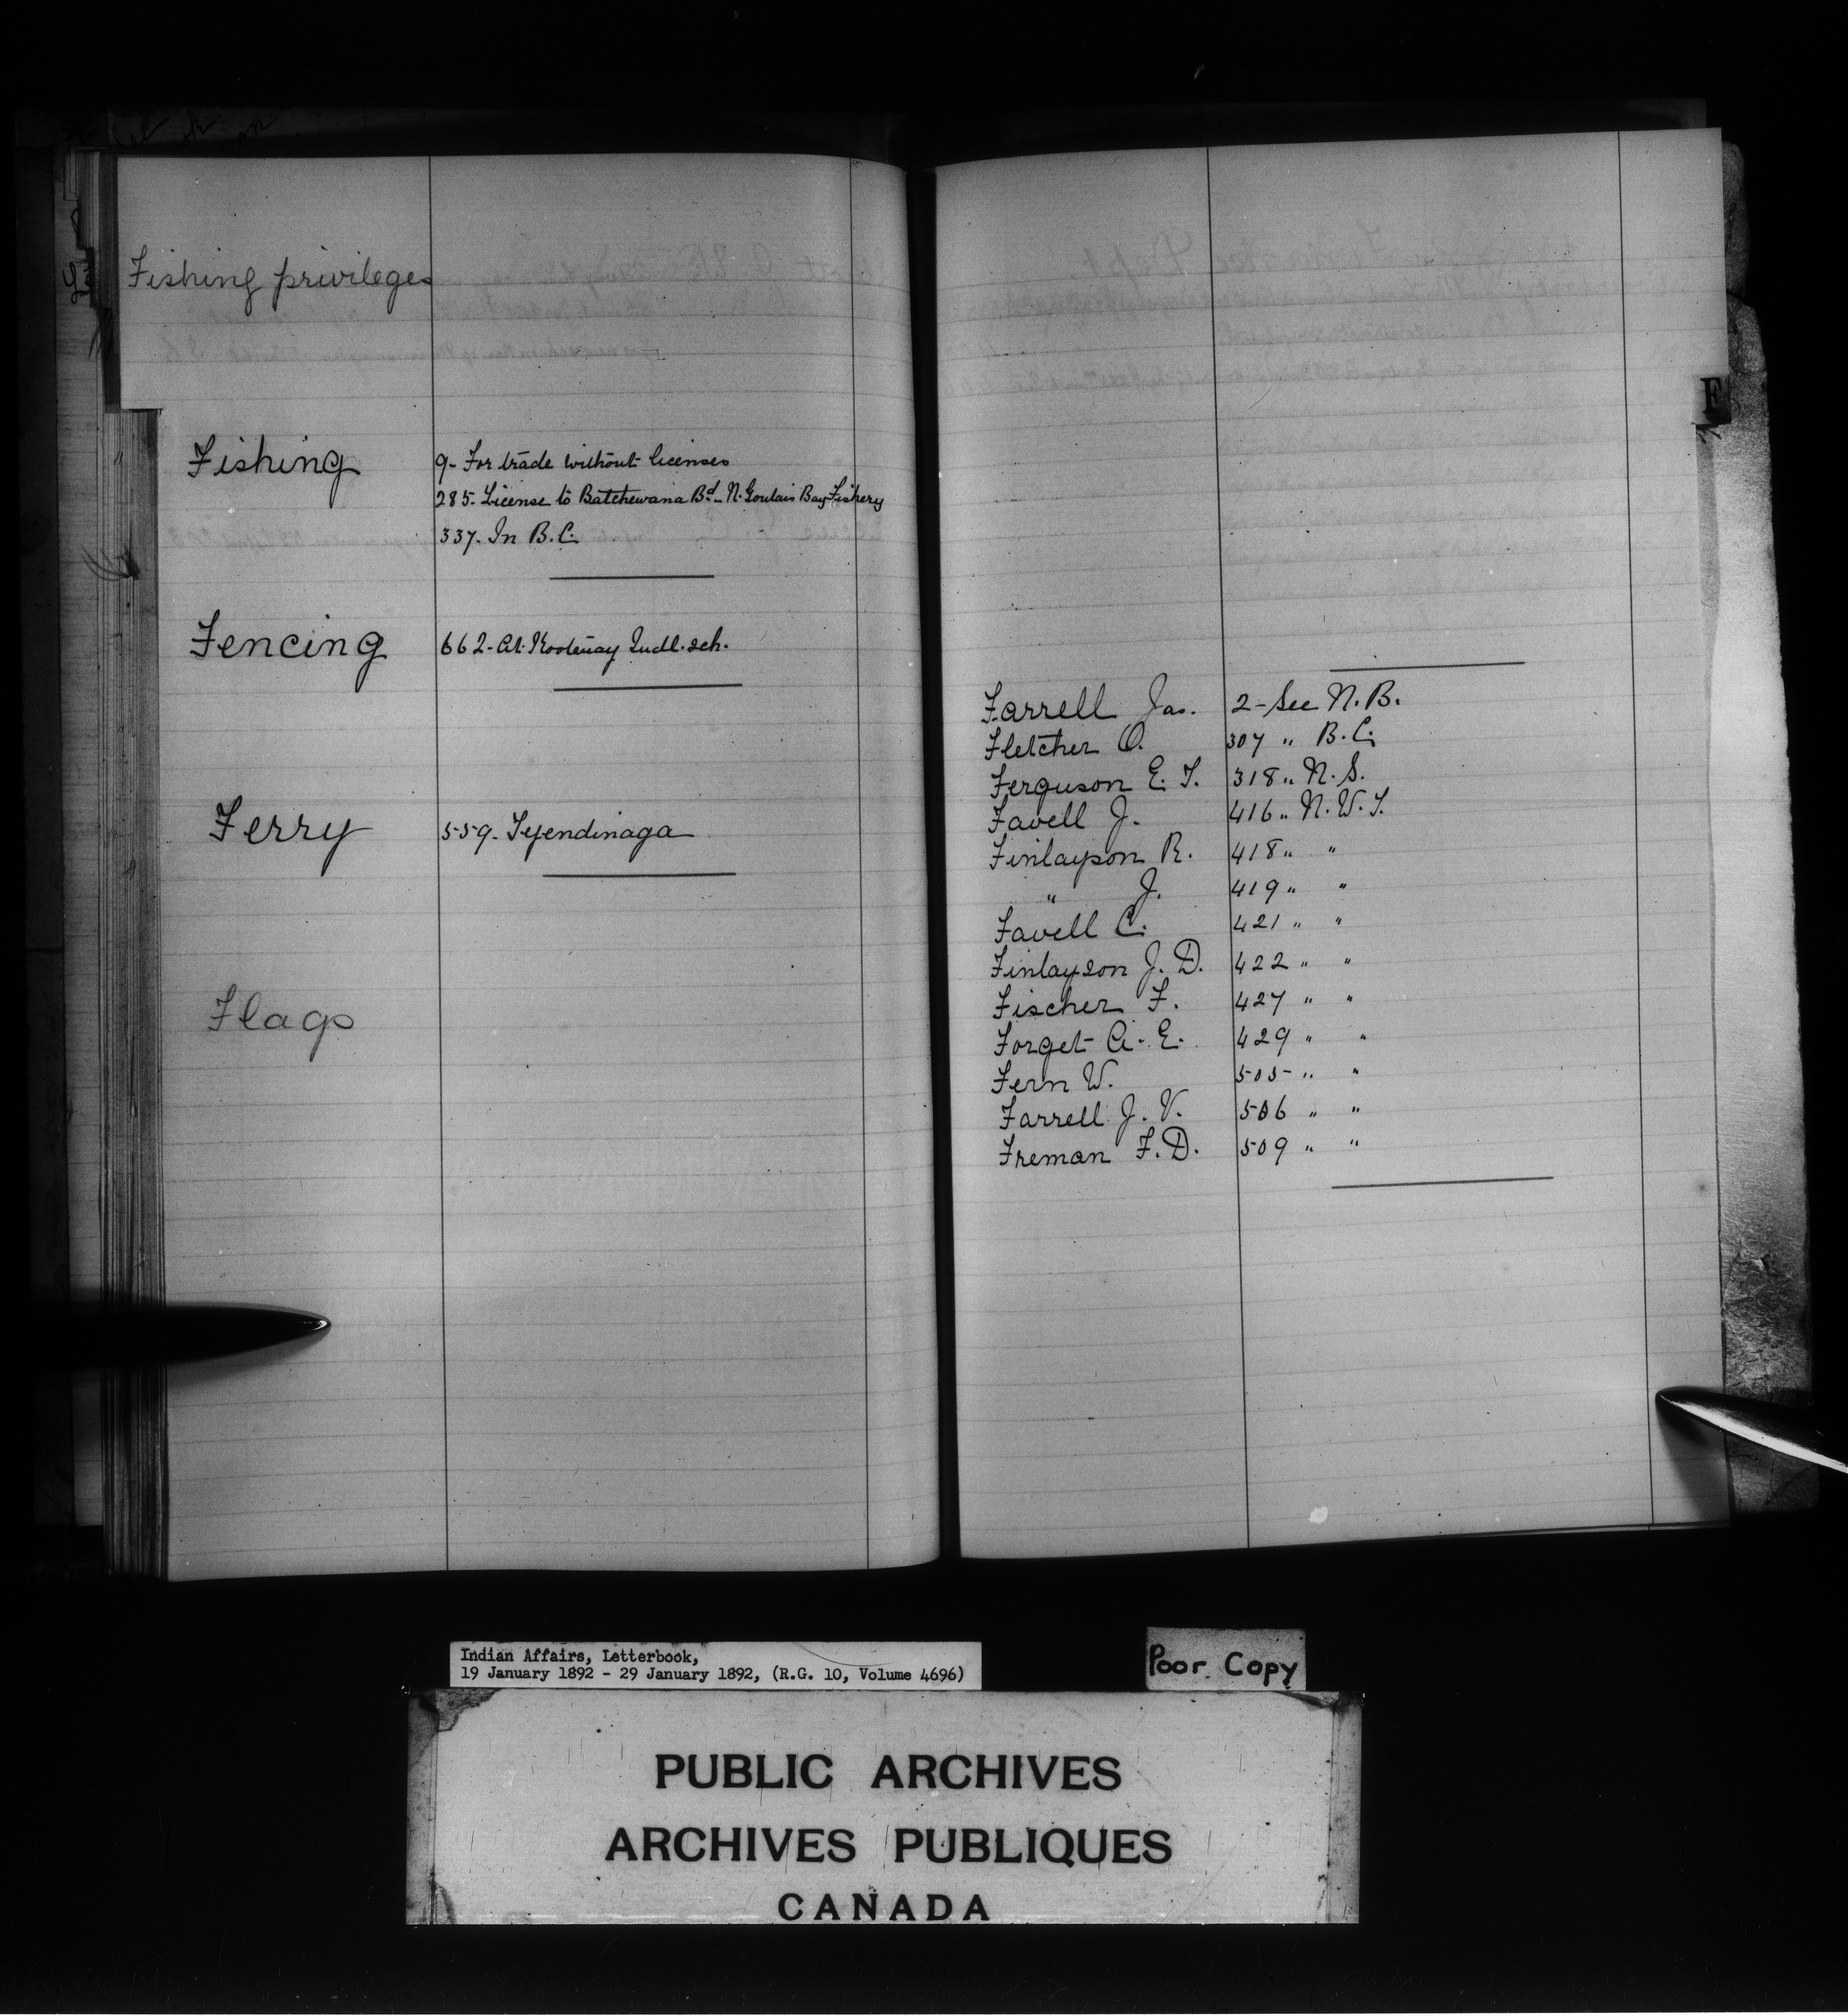 Fishing privileges
Fishing 9- For trade without licenses
285- License to Batchewana Bd. - N. Goulais Bay Fishery
337- In B.C.
Fencing 662- At Kootenay Indl. sch.
Ferry 559- Tyendinaga
Flags
F
Farrell Jas. 2- See N.B.
Fletcher O. 307 " B.C.
Ferguson E. T. 318 " N.S.
Favell J. 416 " N.W.T.
Finlayson R. 418 " "
" J. 419 " "
Favell C. 421 " "
Finlayson J. D. 422 " "
Fischer F. 427 " "
Forget A. E. 429 " "
Fern W. 505 " "
Farrell J. V. 506 " "
Freman F. D. 509 " "
Indian Affairs, Letterbook,
19 January 1892 - 29 January 1892, (R.G. 10, Volume 4696)
Poor Copy
PUBLIC ARCHIVES
ARCHIVES PUBLIQUES
CANADA